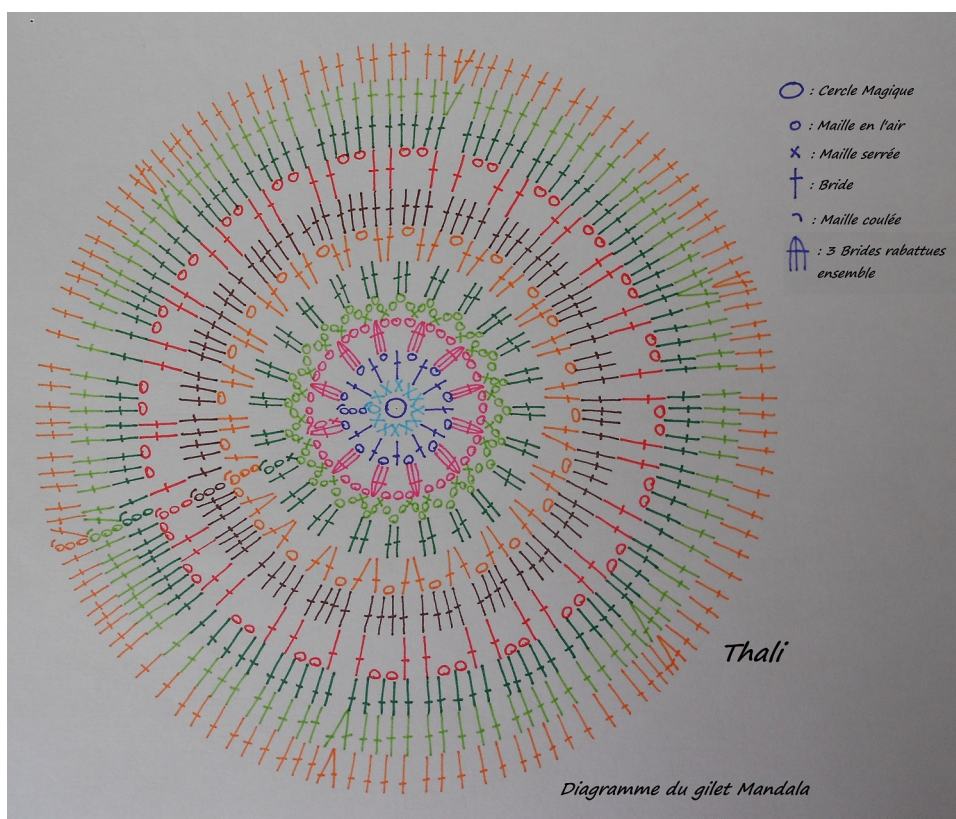 : Cercle Magique
: Maille en l'air
: Maille serrée
: Bride
: Maille coulée
: 3 Brides rabattues
ensemble
Thali
Diagramme du gilet Mandala